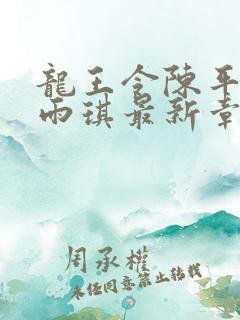 龍王令陳平
雨琪最新章
周承權
未经同意禁止转载